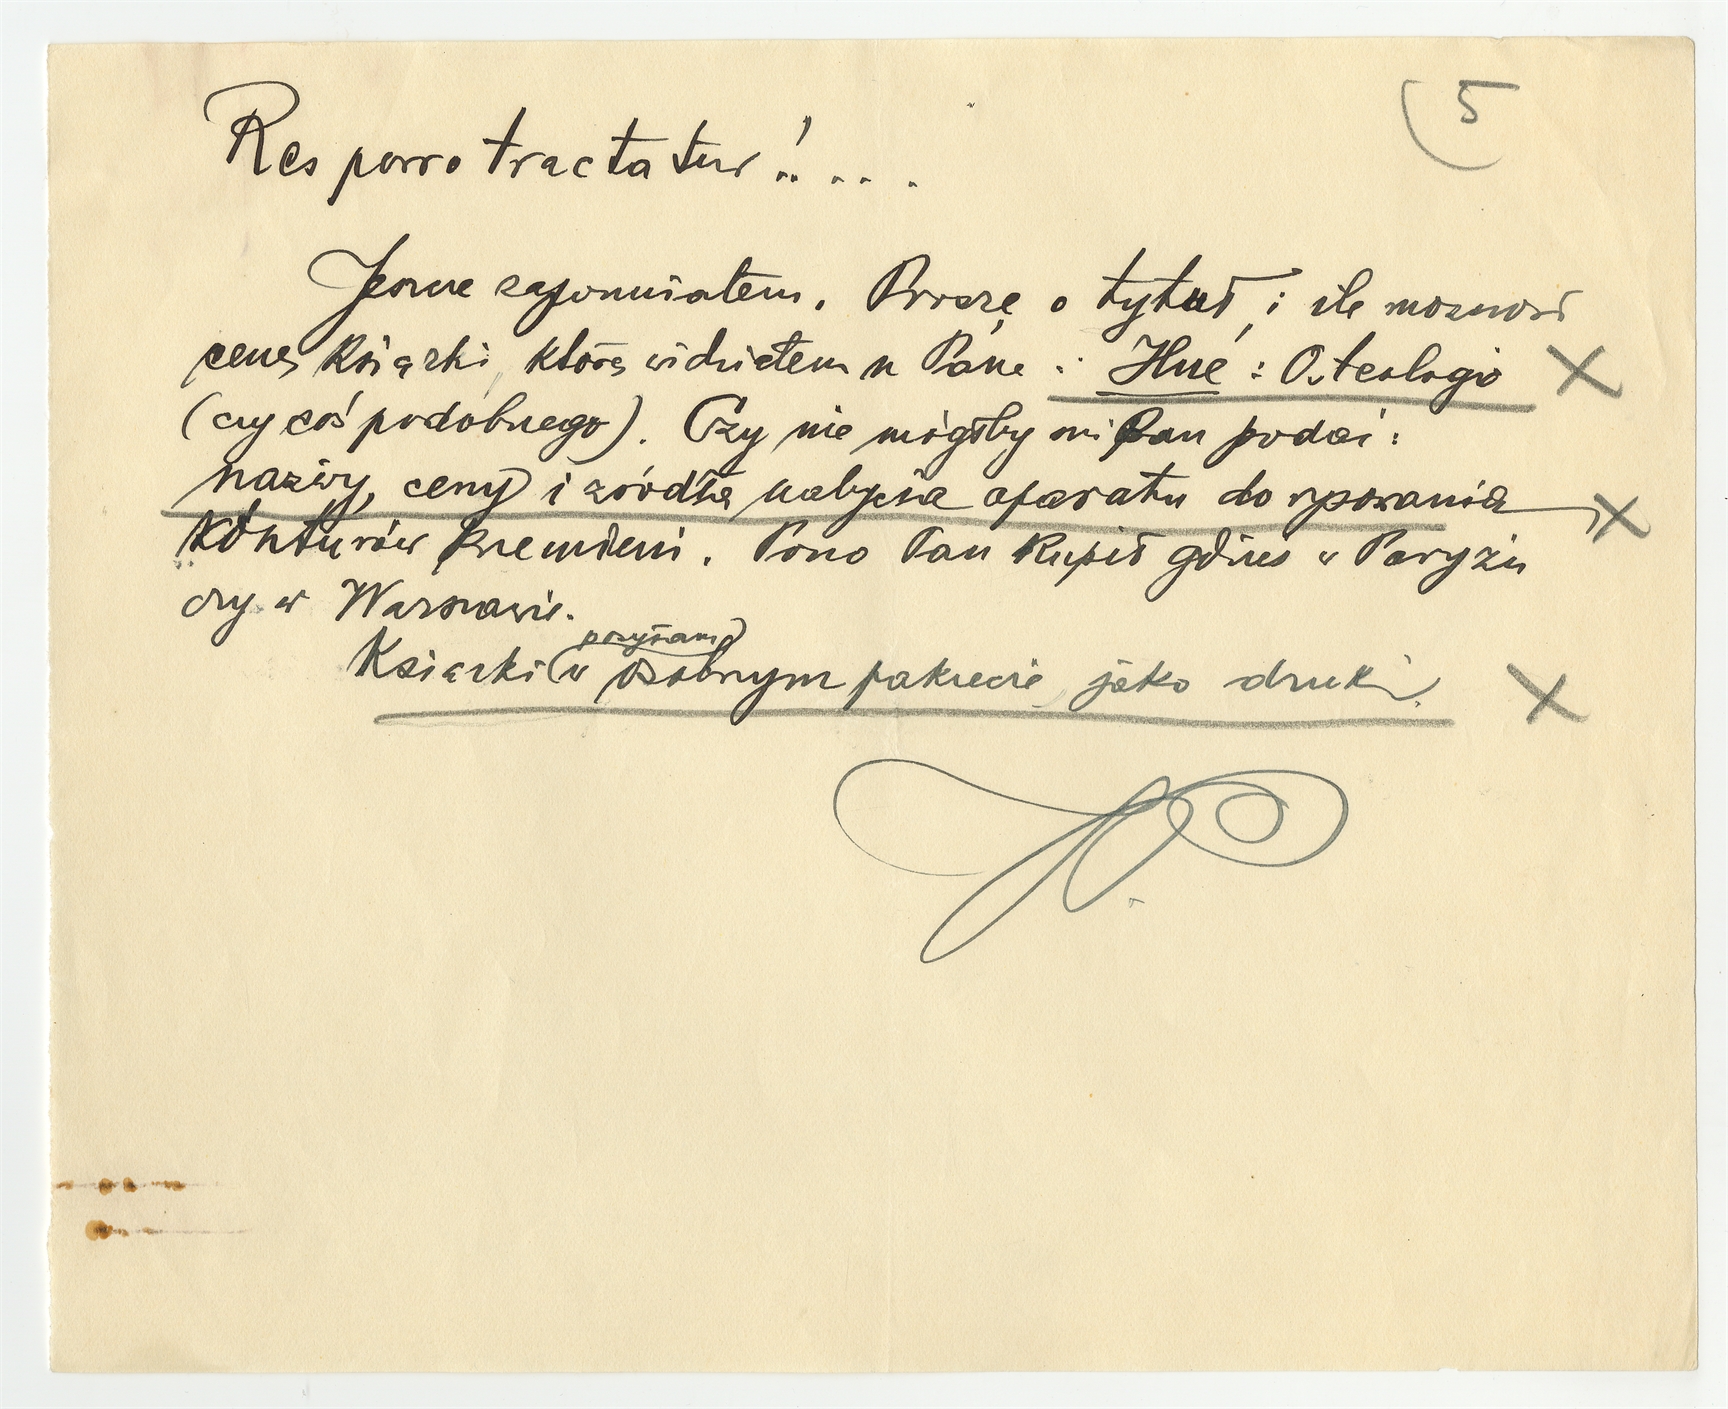 5
Res porro tractatur!....
Jeszcze zapomniałem. Proszę o tytuł, i ile możności
cenę książki, którą widziałem u Pana: Hué: Osteologie
(czy coś podobnego). Czy nie mógłby mi Pan podać:
nazwy, ceny i źródła nabycia aparatu do rysowania
konturów krzemieni. Pono Pan kupił gdzieś w Paryżu
czy w Warszawie.
posyłam
Książki w osobnym pakiecie, jako druki.